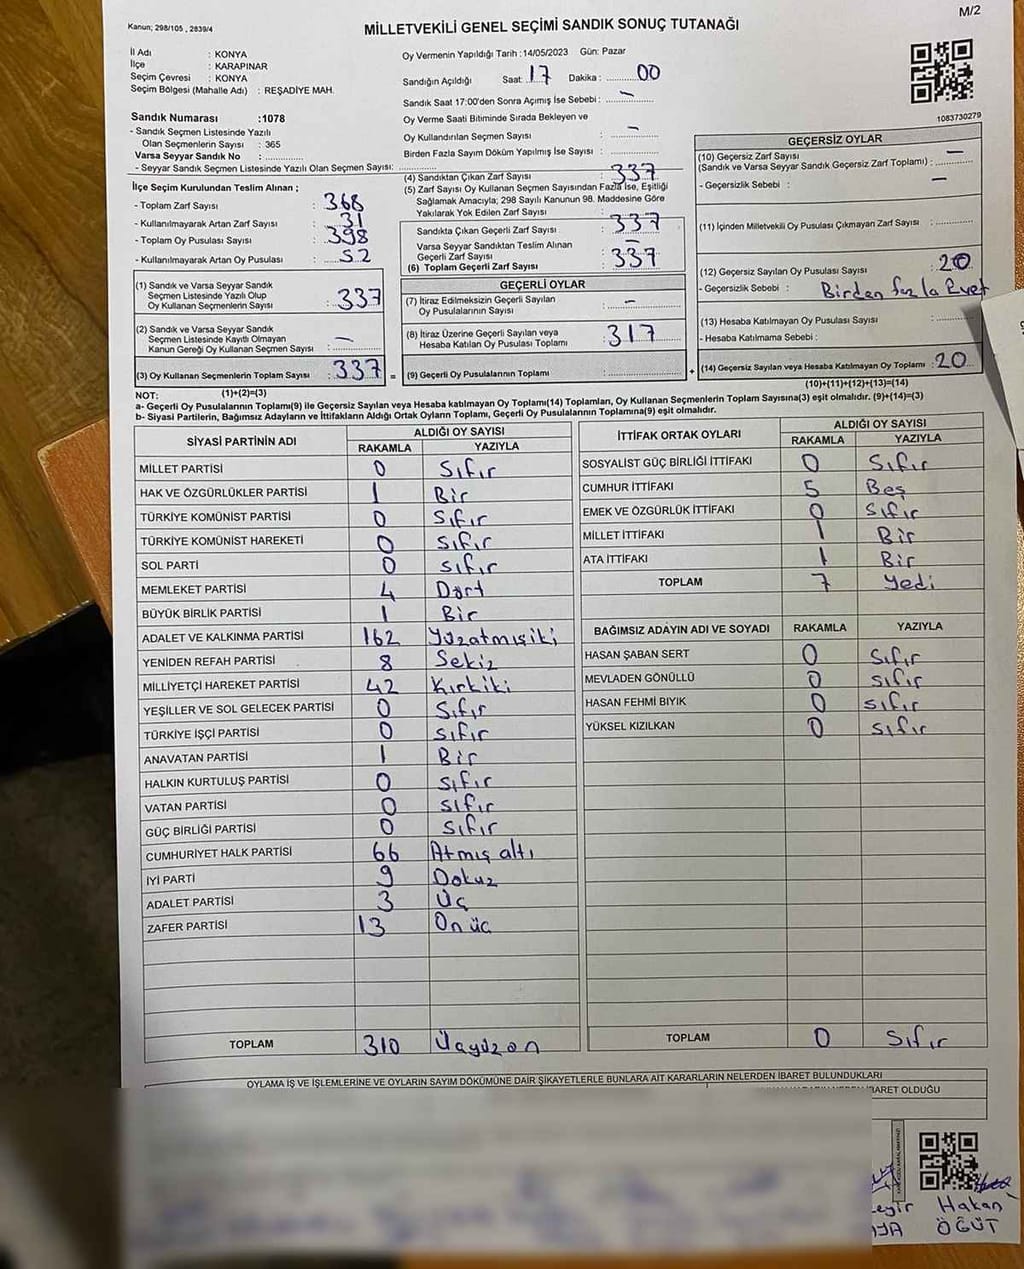 Kanun; 298/105 , 2839/4
MİLLETVEKİLİ GENEL SEÇİMİ SANDIK SONUÇ TUTANAĞI
M/2
İl Adı : KONYA
İlçe : KARAPINAR
Seçim Çevresi : KONYA
Seçim Bölgesi (Mahalle Adı) : REŞADİYE MAH.
Sandık Numarası :1078
- Sandık Seçmen Listesinde Yazılı
Olan Seçmenlerin Sayısı : 365
Varsa Seyyar Sandık No :
- Seyyar Sandık Seçmen Listesinde Yazılı Olan Seçmen Sayısı:
İlçe Seçim Kurulundan Teslim Alınan ;
- Toplam Zarf Sayısı : 368
- Kullanılmayarak Artan Zarf Sayısı : 31
- Toplam Oy Pusulası Sayısı : 398
- Kullanılmayarak Artan Oy Pusulası : 52
(1) Sandık ve Varsa Seyyar Sandık
Seçmen Listesinde Yazılı Olup
Oy Kullanan Seçmenlerin Sayısı : 337
(2) Sandık ve Varsa Seyyar Sandık
Seçmen Listesinde Kayıtlı Olmayan
Kanun Gereği Oy Kullanan Seçmen Sayısı : —
(3) Oy Kullanan Seçmenlerin Toplam Sayısı : 337 =
Oy Vermenin Yapıldığı Tarih :14/05/2023 Gün: Pazar
Sandığın Açıldığı Saat: 17 Dakika : 00
Sandık Saat 17:00'den Sonra Açımış İse Sebebi : —
Oy Verme Saati Bitiminde Sırada Bekleyen ve
Oy Kullandırılan Seçmen Sayısı : —
Birden Fazla Sayım Döküm Yapılmış İse Sayısı :
(4) Sandıktan Çıkan Zarf Sayısı : 337
(5) Zarf Sayısı Oy Kullanan Seçmen Sayısından Fazla İse, Eşitliği
Sağlamak Amacıyla; 298 Sayılı Kanunun 98. Maddesine Göre
Yakılarak Yok Edilen Zarf Sayısı :
Sandıkta Çıkan Geçerli Zarf Sayısı : 337
Varsa Seyyar Sandıktan Teslim Alınan
Geçerli Zarf Sayısı : —
(6) Toplam Geçerli Zarf Sayısı : 337
GEÇERLİ OYLAR
(7) İtiraz Edilmeksizin Geçerli Sayılan
Oy Pusulalarının Sayısı : —
(8) İtiraz Üzerine Geçerli Sayılan veya
Hesaba Katılan Oy Pusulası Toplamı : 317
(9) Geçerli Oy Pusulalarının Toplamı : +
1083730279
GEÇERSİZ OYLAR
(10) Geçersiz Zarf Sayısı —
(Sandık ve Varsa Seyyar Sandık Geçersiz Zarf Toplamı) :
- Geçersizlik Sebebi : —
(11) İçinden Milletvekili Oy Pusulası Çıkmayan Zarf Sayısı :
(12) Geçersiz Sayılan Oy Pusulası Sayısı : 20
- Geçersizlik Sebebi : Birden fazla Evet
(13) Hesaba Katılmayan Oy Pusulası Sayısı :
- Hesaba Katılmama Sebebi :
(14) Geçersiz Sayılan veya Hesaba Katılmayan Oy Toplamı : 20
NOT: (1)+(2)=(3) (10)+(11)+(12)+(13)=(14)
a- Geçerli Oy Pusulalarının Toplamı(9) ile Geçersiz Sayılan veya Hesaba katılmayan Oy Toplamı(14) Toplamları, Oy Kullanan Seçmenlerin Toplam Sayısına(3) eşit olmalıdır. (9)+(14)=(3)
b- Siyasi Partilerin, Bağımsız Adayların ve İttifakların Aldığı Ortak Oyların Toplamı, Geçerli Oy Pusulalarının Toplamına(9) eşit olmalıdır.
SİYASİ PARTİNİN ADI ALDIĞI OY SAYISI
RAKAMLA YAZIYLA
MİLLET PARTİSİ 0 Sıfır
HAK VE ÖZGÜRLÜKLER PARTİSİ 1 Bir
TÜRKİYE KOMÜNİST PARTİSİ 0 Sıfır
TÜRKİYE KOMÜNİST HAREKETİ 0 Sıfır
SOL PARTİ 0 Sıfır
MEMLEKET PARTİSİ 4 Dört
BÜYÜK BİRLİK PARTİSİ 1 Bir
ADALET VE KALKINMA PARTİSİ 162 Yüzatmışiki
YENİDEN REFAH PARTİSİ 8 Sekiz
MİLLİYETÇİ HAREKET PARTİSİ 42 Kırkiki
YEŞİLLER VE SOL GELECEK PARTİSİ 0 Sıfır
TÜRKİYE İŞÇİ PARTİSİ 0 Sıfır
ANAVATAN PARTİSİ 1 Bir
HALKIN KURTULUŞ PARTİSİ 0 Sıfır
VATAN PARTİSİ 0 Sıfır
GÜÇ BİRLİĞİ PARTİSİ 0 Sıfır
CUMHURİYET HALK PARTİSİ 66 Atmış altı
İYİ PARTİ 9 Dokuz
ADALET PARTİSİ 3 Üç
ZAFER PARTİSİ 13 On üç
TOPLAM 310 Üçyüzon
İTTİFAK ORTAK OYLARI ALDIĞI OY SAYISI
RAKAMLA YAZIYLA
SOSYALİST GÜÇ BİRLİĞİ İTTİFAKI 0 Sıfır
CUMHUR İTTİFAKI 5 Beş
EMEK VE ÖZGÜRLÜK İTTİFAKI 0 Sıfır
MİLLET İTTİFAKI 1 Bir
ATA İTTİFAKI 1 Bir
TOPLAM 7 Yedi
BAĞIMSIZ ADAYIN ADI VE SOYADI RAKAMLA YAZIYLA
HASAN ŞABAN SERT 0 Sıfır
MEVLADEN GÖNÜLLÜ 0 Sıfır
HASAN FEHMİ BIYIK 0 Sıfır
YÜKSEL KIZILKAN 0 Sıfır
TOPLAM 0 Sıfır
OYLAMA İŞ VE İŞLEMLERİNE VE OYLARIN SAYIM DÖKÜMÜNE DAİR ŞİKAYETLERLE BUNLARA AİT KARARLARIN NELERDEN İBARET BULUNDUKLARI
İBARET OLDUĞU
Hakan
ÖĞÜT